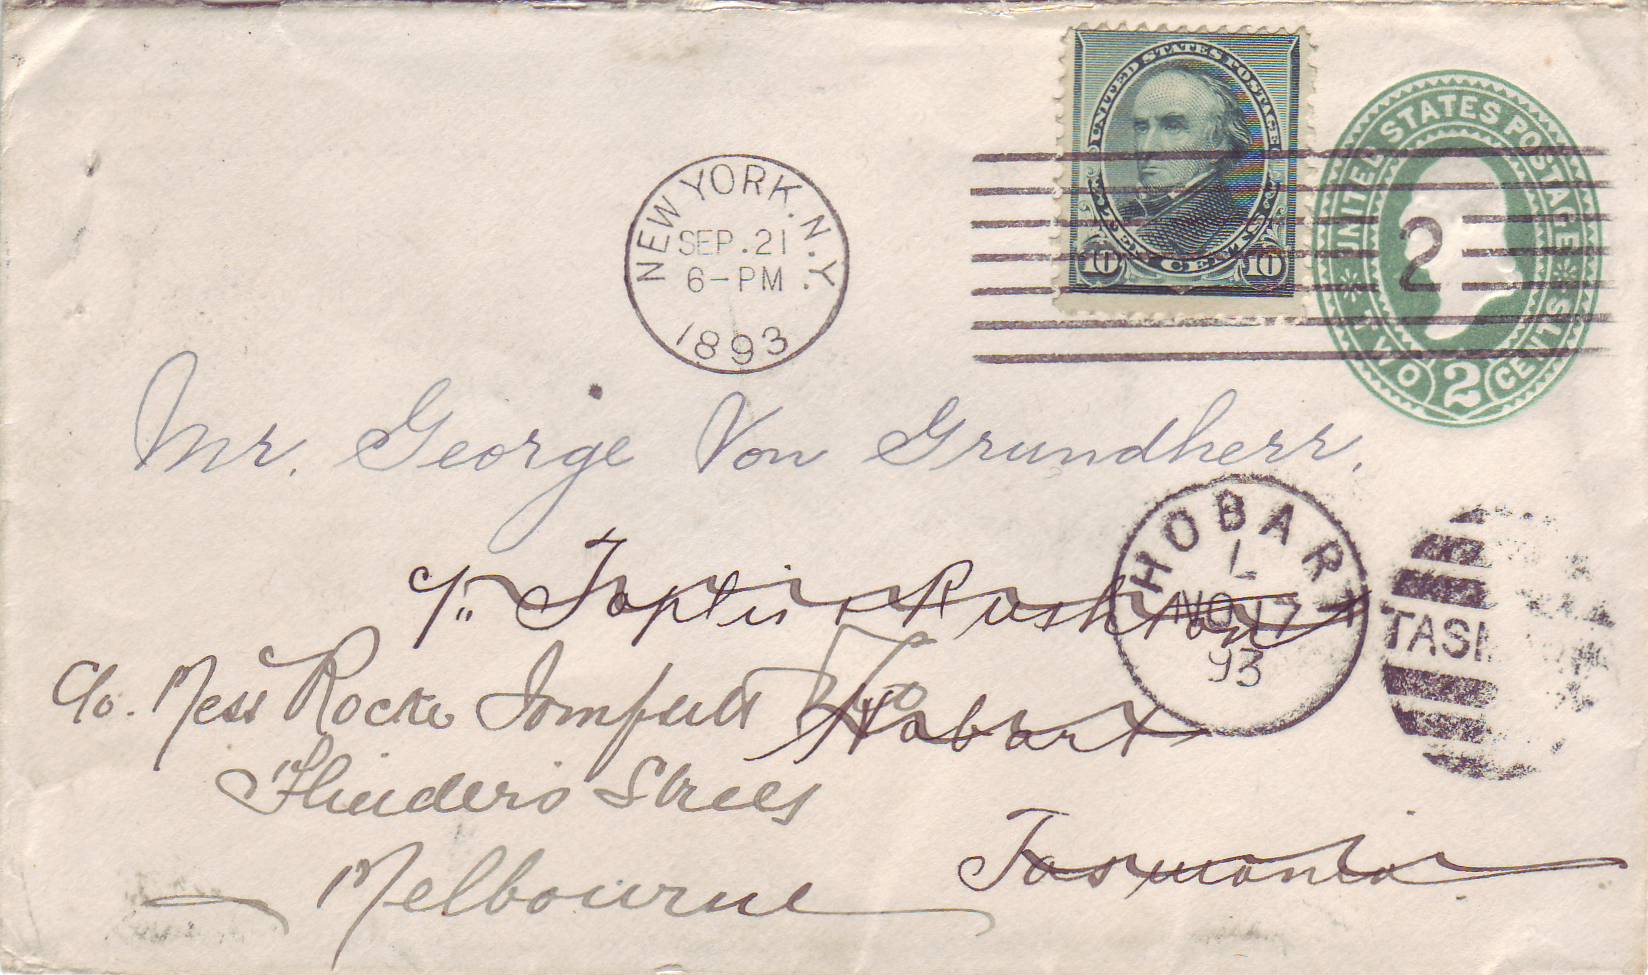 UNITED STATES POSTAGE
10 10
TEN CENTS
UNITED STATES POSTAGE
TWO 2 CENTS
2
NEW YORK. N.Y.
SEP. 21
6-PM
1893
Mr. George Von Grundherr.
HOBART
L
NO 17
93
TAS
Hobart
c/o. Mess Rocke
Flinders Street
Melbourne
Tasmania